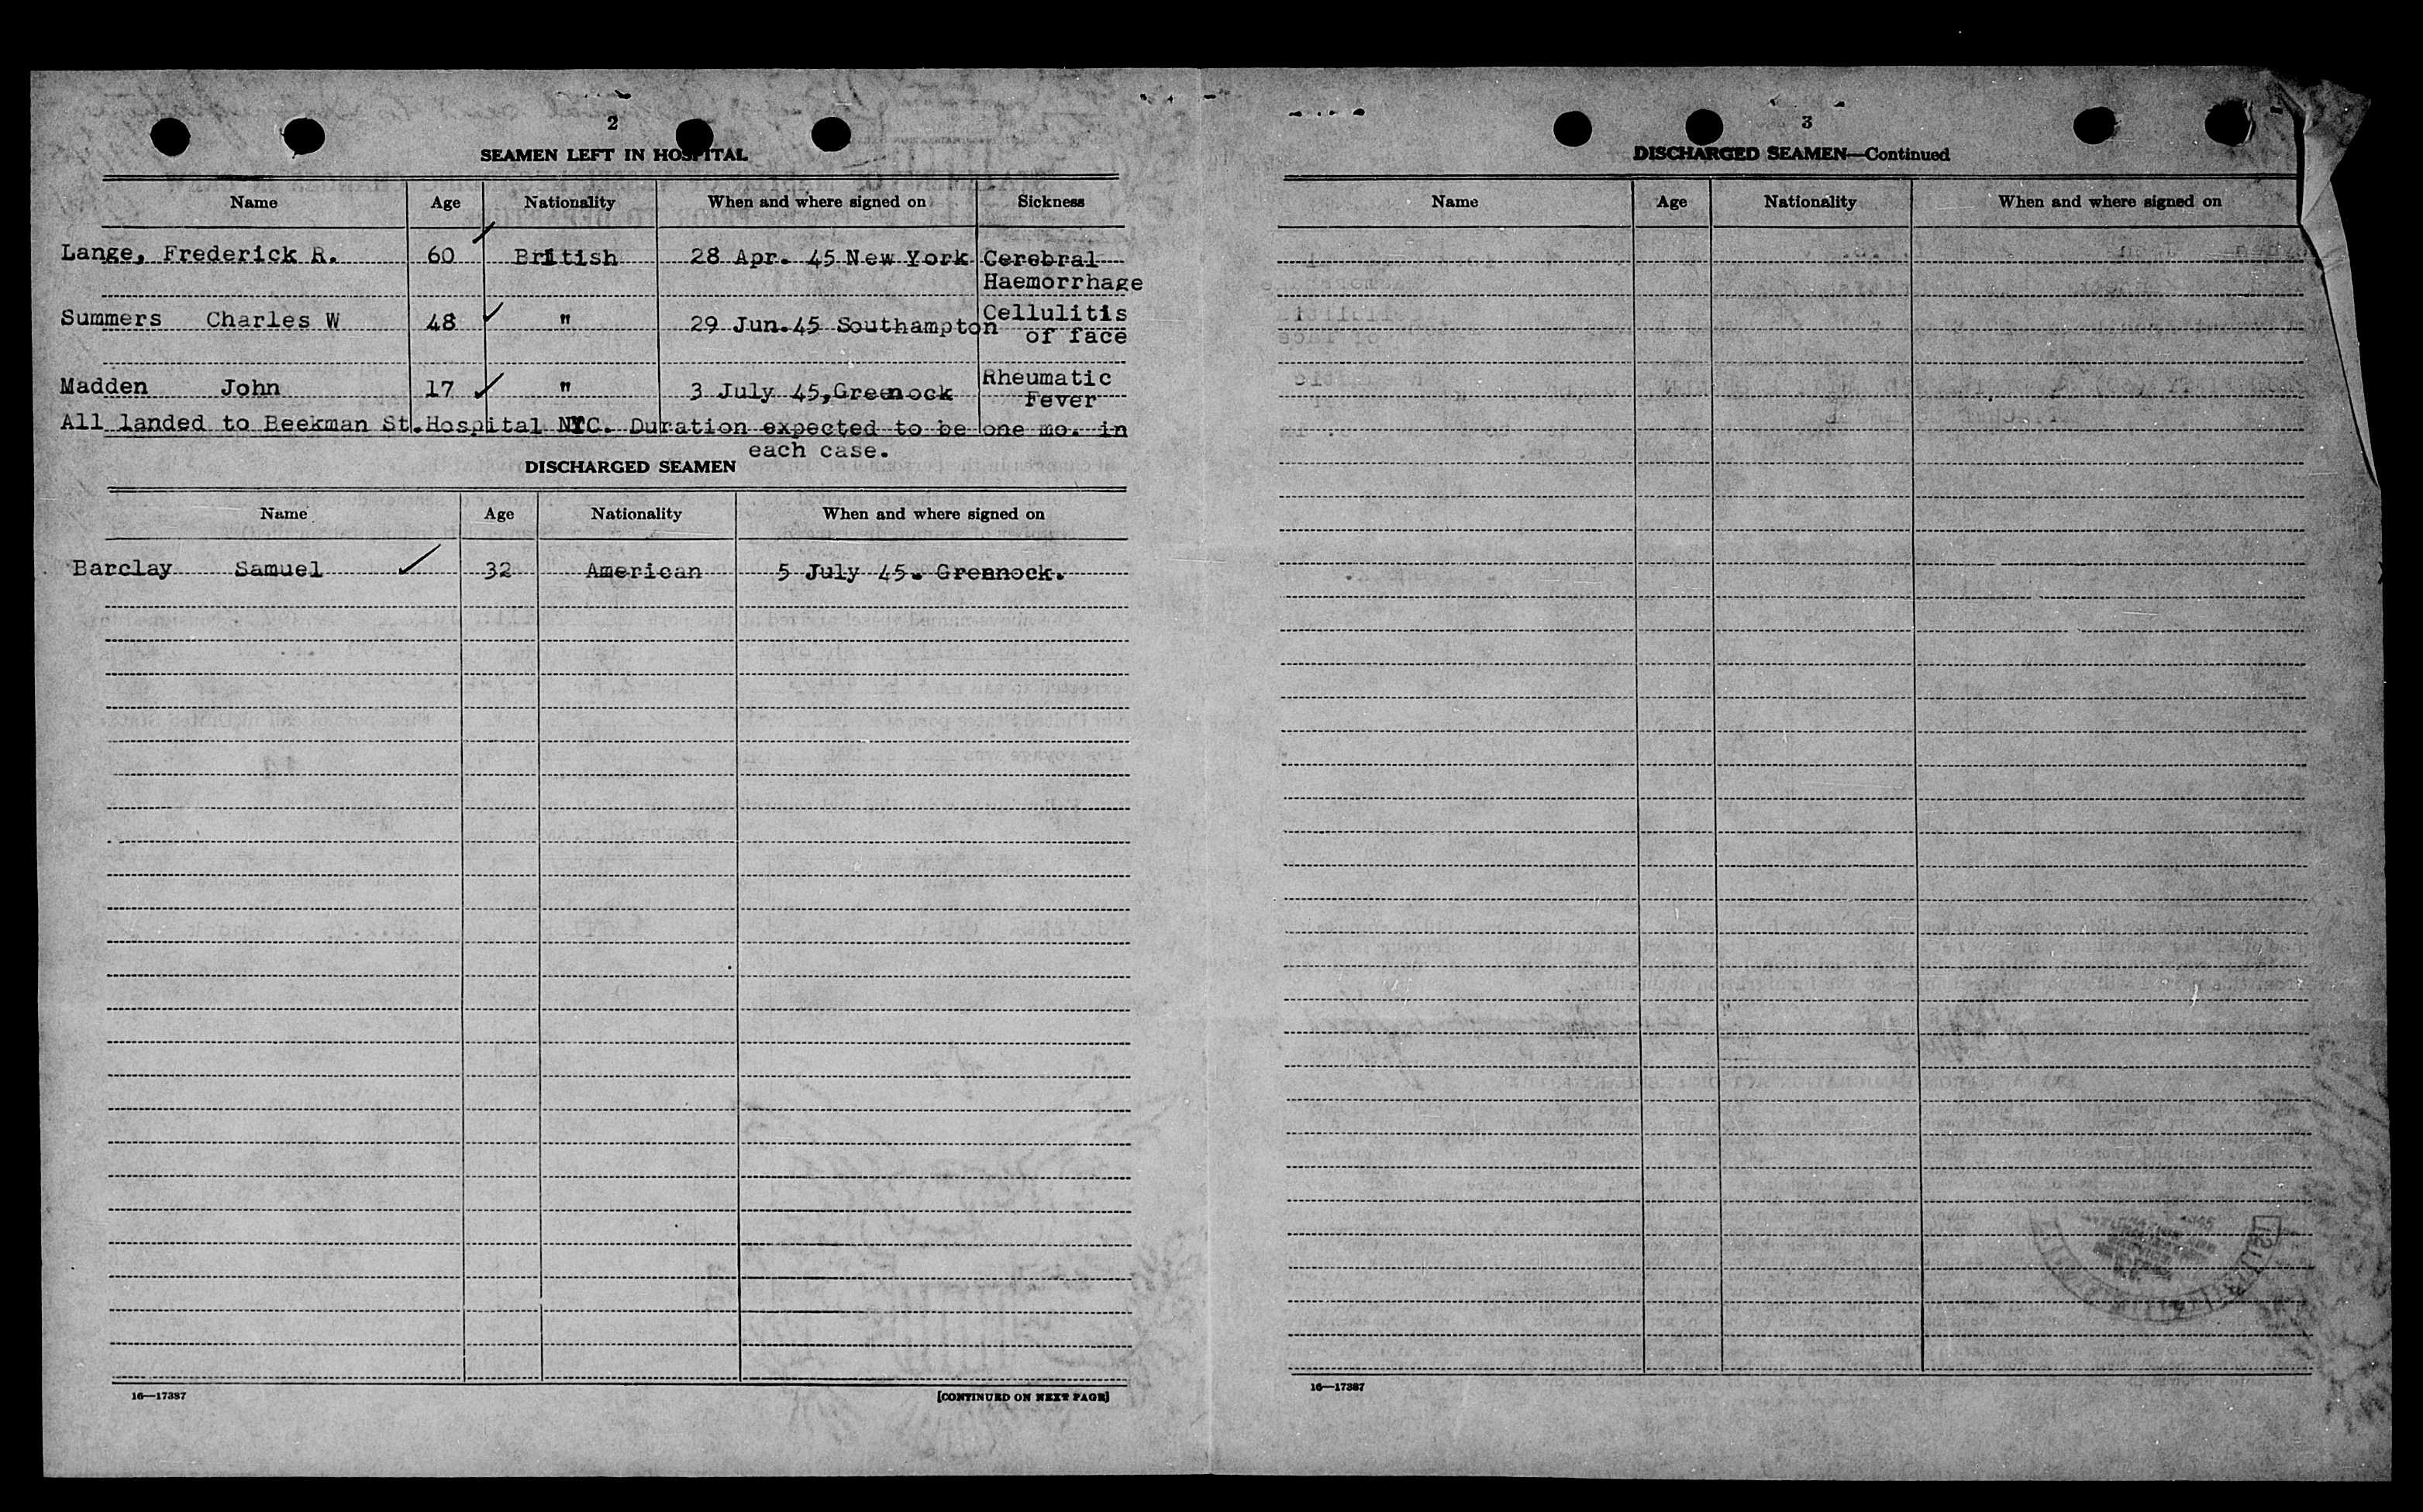 2
SEAMEN LEFT IN HOSPITAL
Name Age Nationality When and where signed on Sickness
Lange, Frederick R. 60 British 28 Apr. 45 New York Cerebral
Haemorrhage
Summers Charles W 48 " 29 Jun.45 Southampton Cellulitis
of face
Madden John 17 " 3 July 45,Greenock Rheumatic
Fever
All landed to Beekman St.Hospital NYC. Duration expected to be one mo. in
each case.
DISCHARGED SEAMEN
Name Age Nationality When and where signed on
Barclay Samuel 32 American 5 July 45. Greenock.
16—17387
[CONTINUED ON NEXT PAGE]
3
DISCHARGED SEAMEN—Continued
Name Age Nationality When and where signed on
16—17387